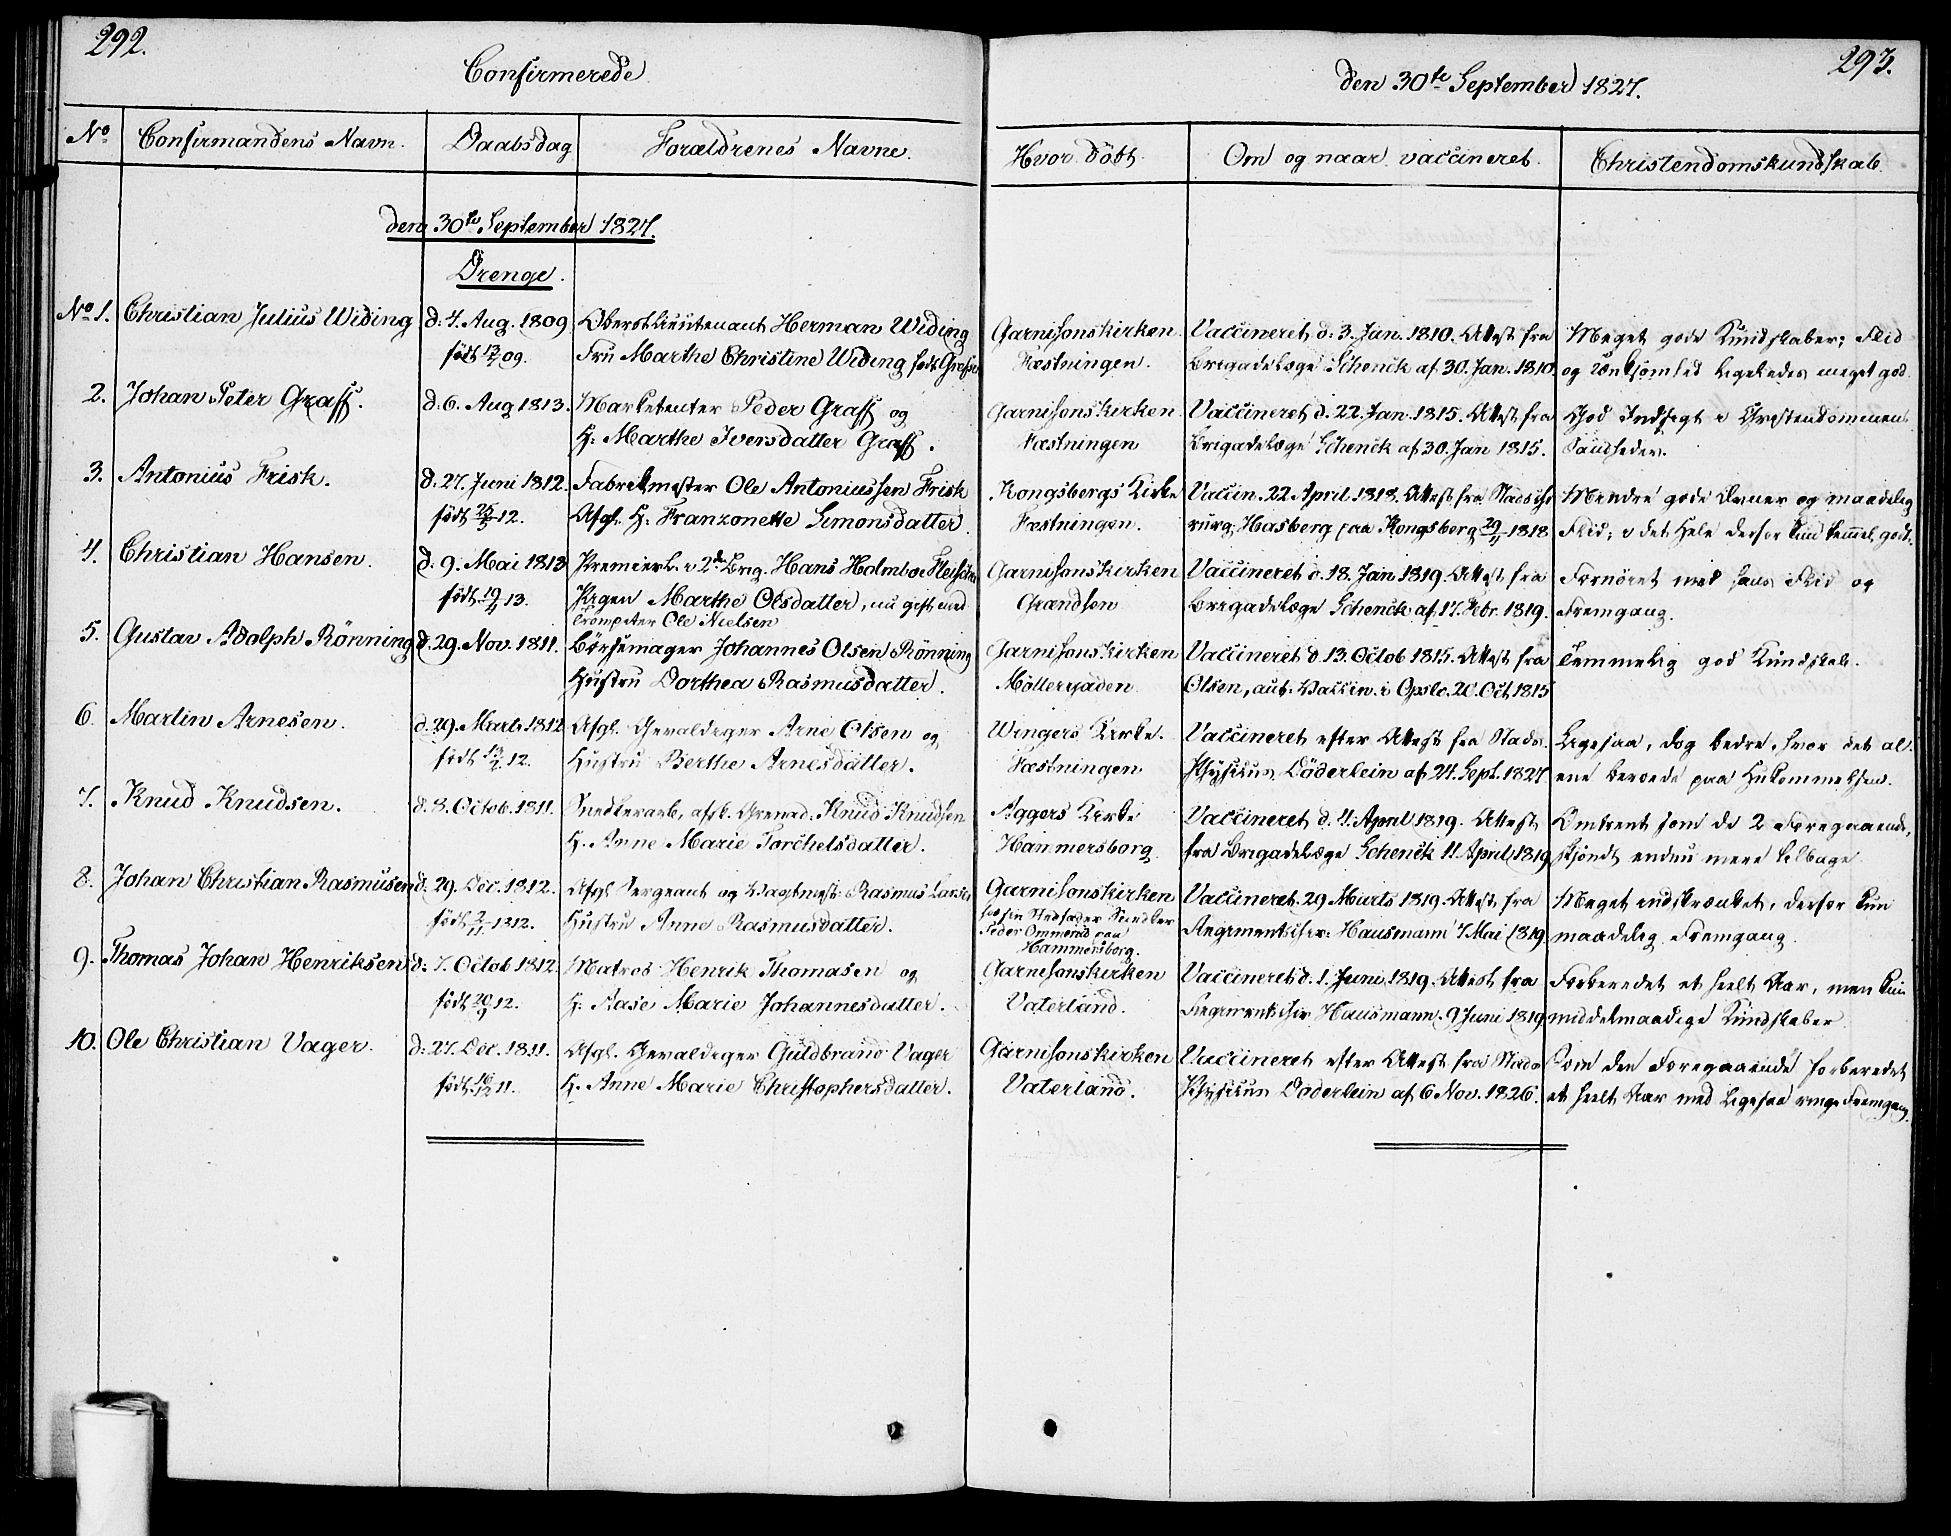 292.
Confirmerede
No
Confirmandens Navn.
Daabsdag
Forældrenes Navne.
den 30te September 1827.
Drenge.
No 1. Christian Julius Widing d: 4. Aug. 1809 Oberstlieutenant Herman Widing
født 13/7 09. Fru Marthe Christine Widing født
2. Johan Peter Graff. d: 6. Aug 1813. Marketenter Peder Graff og
H: Marthe Iversdatter Graff.
3. Antonius Frisk. d: 27. Juni 1812. Fabrikmester Ole Antoniussen Frisk
født 25/5 12. Afgl. H: Franzonette Simonsdatter.
4. Christian Hansen. d: 9. Mai 1813 Premierl. v 2den Brig. Hans Holmboe Fleischer
født 19/4 13. Pigen Marthe Olsdatter, nu gift med
Trompeter Ole Nielsen
5. Gustav Adolph Rönning d. 29. Nov. 1811. Børsemager Johannes Olsen Rönning
Hustru Dorthea Rasmusdatter.
6. Martin Arnesen. d. 29. Marts 1812 Afgl. Gevaldiger Arne Olsen og
født 13/2 12. Hustru Berthe Arnesdatter.
7. Knud Knudsen. d. 8. Octob. 1811. Snedkerarb, afsk. Grenad. Knud Knudsen
H. Anne Marie Torchelsdatter.
8. Johan Christian Rasmusen d. 29. Dec. 1812. Afgl. Sergeant og Vagtmest. Rasmus Larsen
født 2/11 1812. Hustru Anne Rasmusdatter.
9. Thomas Johan Henriksen d: 7. Octob 1812. Matros Henrik Thomasen og
født 20/9 12. H. Aase Marie Johannesdatter.
10. Ole Christian Vager. d: 27. Dec. 1811. Afgl. Gevaldiger Guldbrand Vager
født 16/12 11. H. Anne Marie Christophersdatter.
293.
den 30te September 1827.
Hvor Döbt.
Om og naar vaccineret.
Christendomskundskab.
Garnisonskirken Vaccineret d. 3. Jan. 1810. Attest fra Meget gode Kundskaber; Flid
Fæstningen. Brigadelæge Schenck af 30. Jan. 1810. og ligeledes meget god.
Garnisonskirken Vaccineret d. 22. Jan. 1815. Attest fra God Indsigt i Christendommens
Fæstningen Brigadelæge Schenck af 30. Jan 1815. Sandheder.
Kongsbergs Kirke Vaccin. 22 April. 1818. Attest fra Stadschi- Mindre gode Evner og maadelig
Fæstningen. rurg. Hasberg paa Kongsberg 29/11 1818 Flid; i det Hele derfor kun temmel. godt.
Garnisonskirken Vaccineret d. 18. Jan 1819. Attest fra Fornöiet med hans Flid og
Grændsen Brigadelæge Schenck af 17. Febr. 1819. Fremgang.
Garnisonskirken Vaccineret d. 13. Octob 1815. Attest fra Temmelig god Kundskab.
Möllergaden. Olsen, aut. Vaccin. i Opslo. 20. Oct. 1815
Wingers Kirke. Vaccineret efter Attest fra Stads- Ligesaa, dog bedre, hvor det al-
Fæstningen Physicus Döderlein af 24. Sept. 1827 ene beroede paa Hukommelsen.
Aggers Kirke Vaccineret d. 4. April 1819. Attest Omtrent som de 2 Foregaaende,
Hammersborg. fra Brigadelæge Schenck 11. April 1819 skjöndt endnu mere tilbage.
Garnisonskirken Vaccineret 29 Marts 1819. Attest fra Meget indskrænket, derfor kun
hos sin Stedfader Snedker
Peder Ommerud paa
Hammersborg. Regimentschir. Hausmann 7 Mai 1819 maadelig Fremgang.
Garnisonskirken Vaccineret d. 1. Juni 1819. Attest fra Forberedet et heelt Aar, men kun
Vaterland. Regimentschir Hausmann. 9 Juni 1819 middelmaadige Kundskaber
Garnisonskirken Vaccineret efter Attest fra Stads- Som den Foregaaende forberedet
Vaterland. Physicus Döderlein af 6 Nov. 1826. et heelt Aar med ligesaa ringe Fremgang.